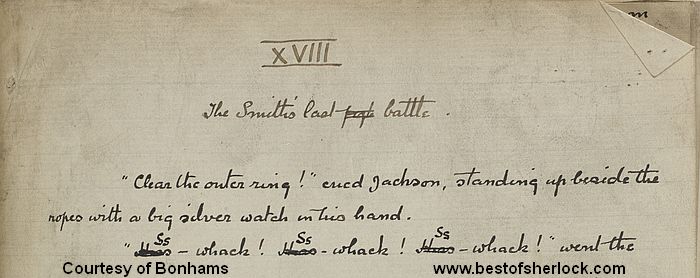 XVIII
The Smith's last fight battle.
"Clear the outer ring!" cried Jackson, standing up beside the
ropes with a big silver watch in his hand.
"Ss-whack! Ss-whack! Ss-whack!" went the
Courtesy of Bonhams
www.bestofsherlock.com